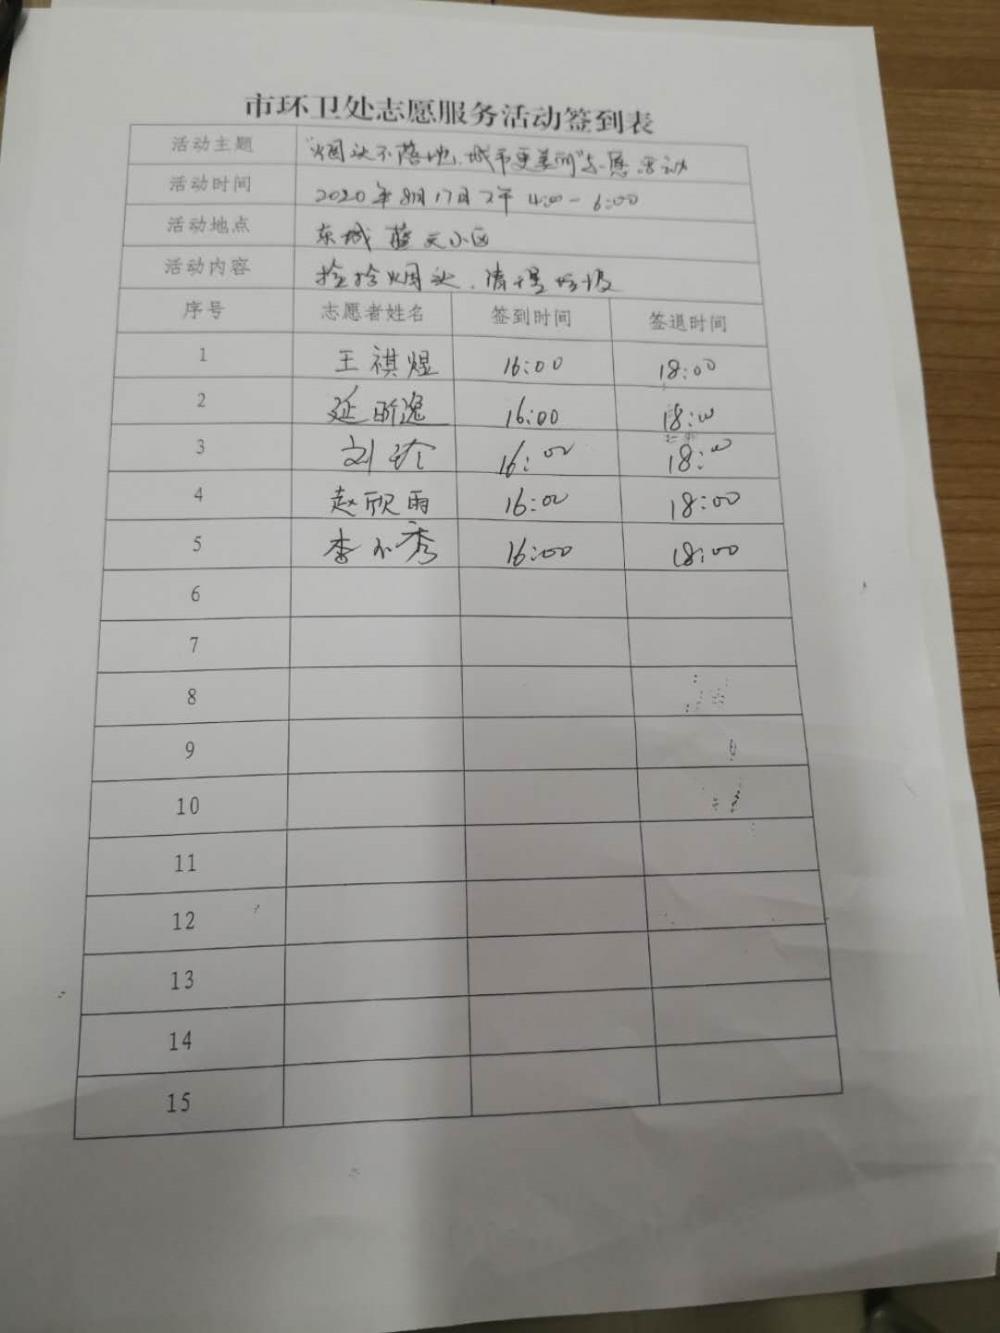 市环卫处志愿服务活动签到表
活动主题 "烟头不落地、城市更美丽"志愿活动
活动时间 2020年8月17日下午 4:00-6:00
活动地点 东城 蓝天小区
活动内容 捡拾烟头、清理垃圾
序号 志愿者姓名 签到时间 签退时间
1 王祺煜 16:00 18:00
2 延昕逸 16:00 18:00
3 刘玲 16:00 18:00
4 赵欣雨 16:00 18:00
5 李小秀 16:00 18:00
6
7
8
9
10
11
12
13
14
15